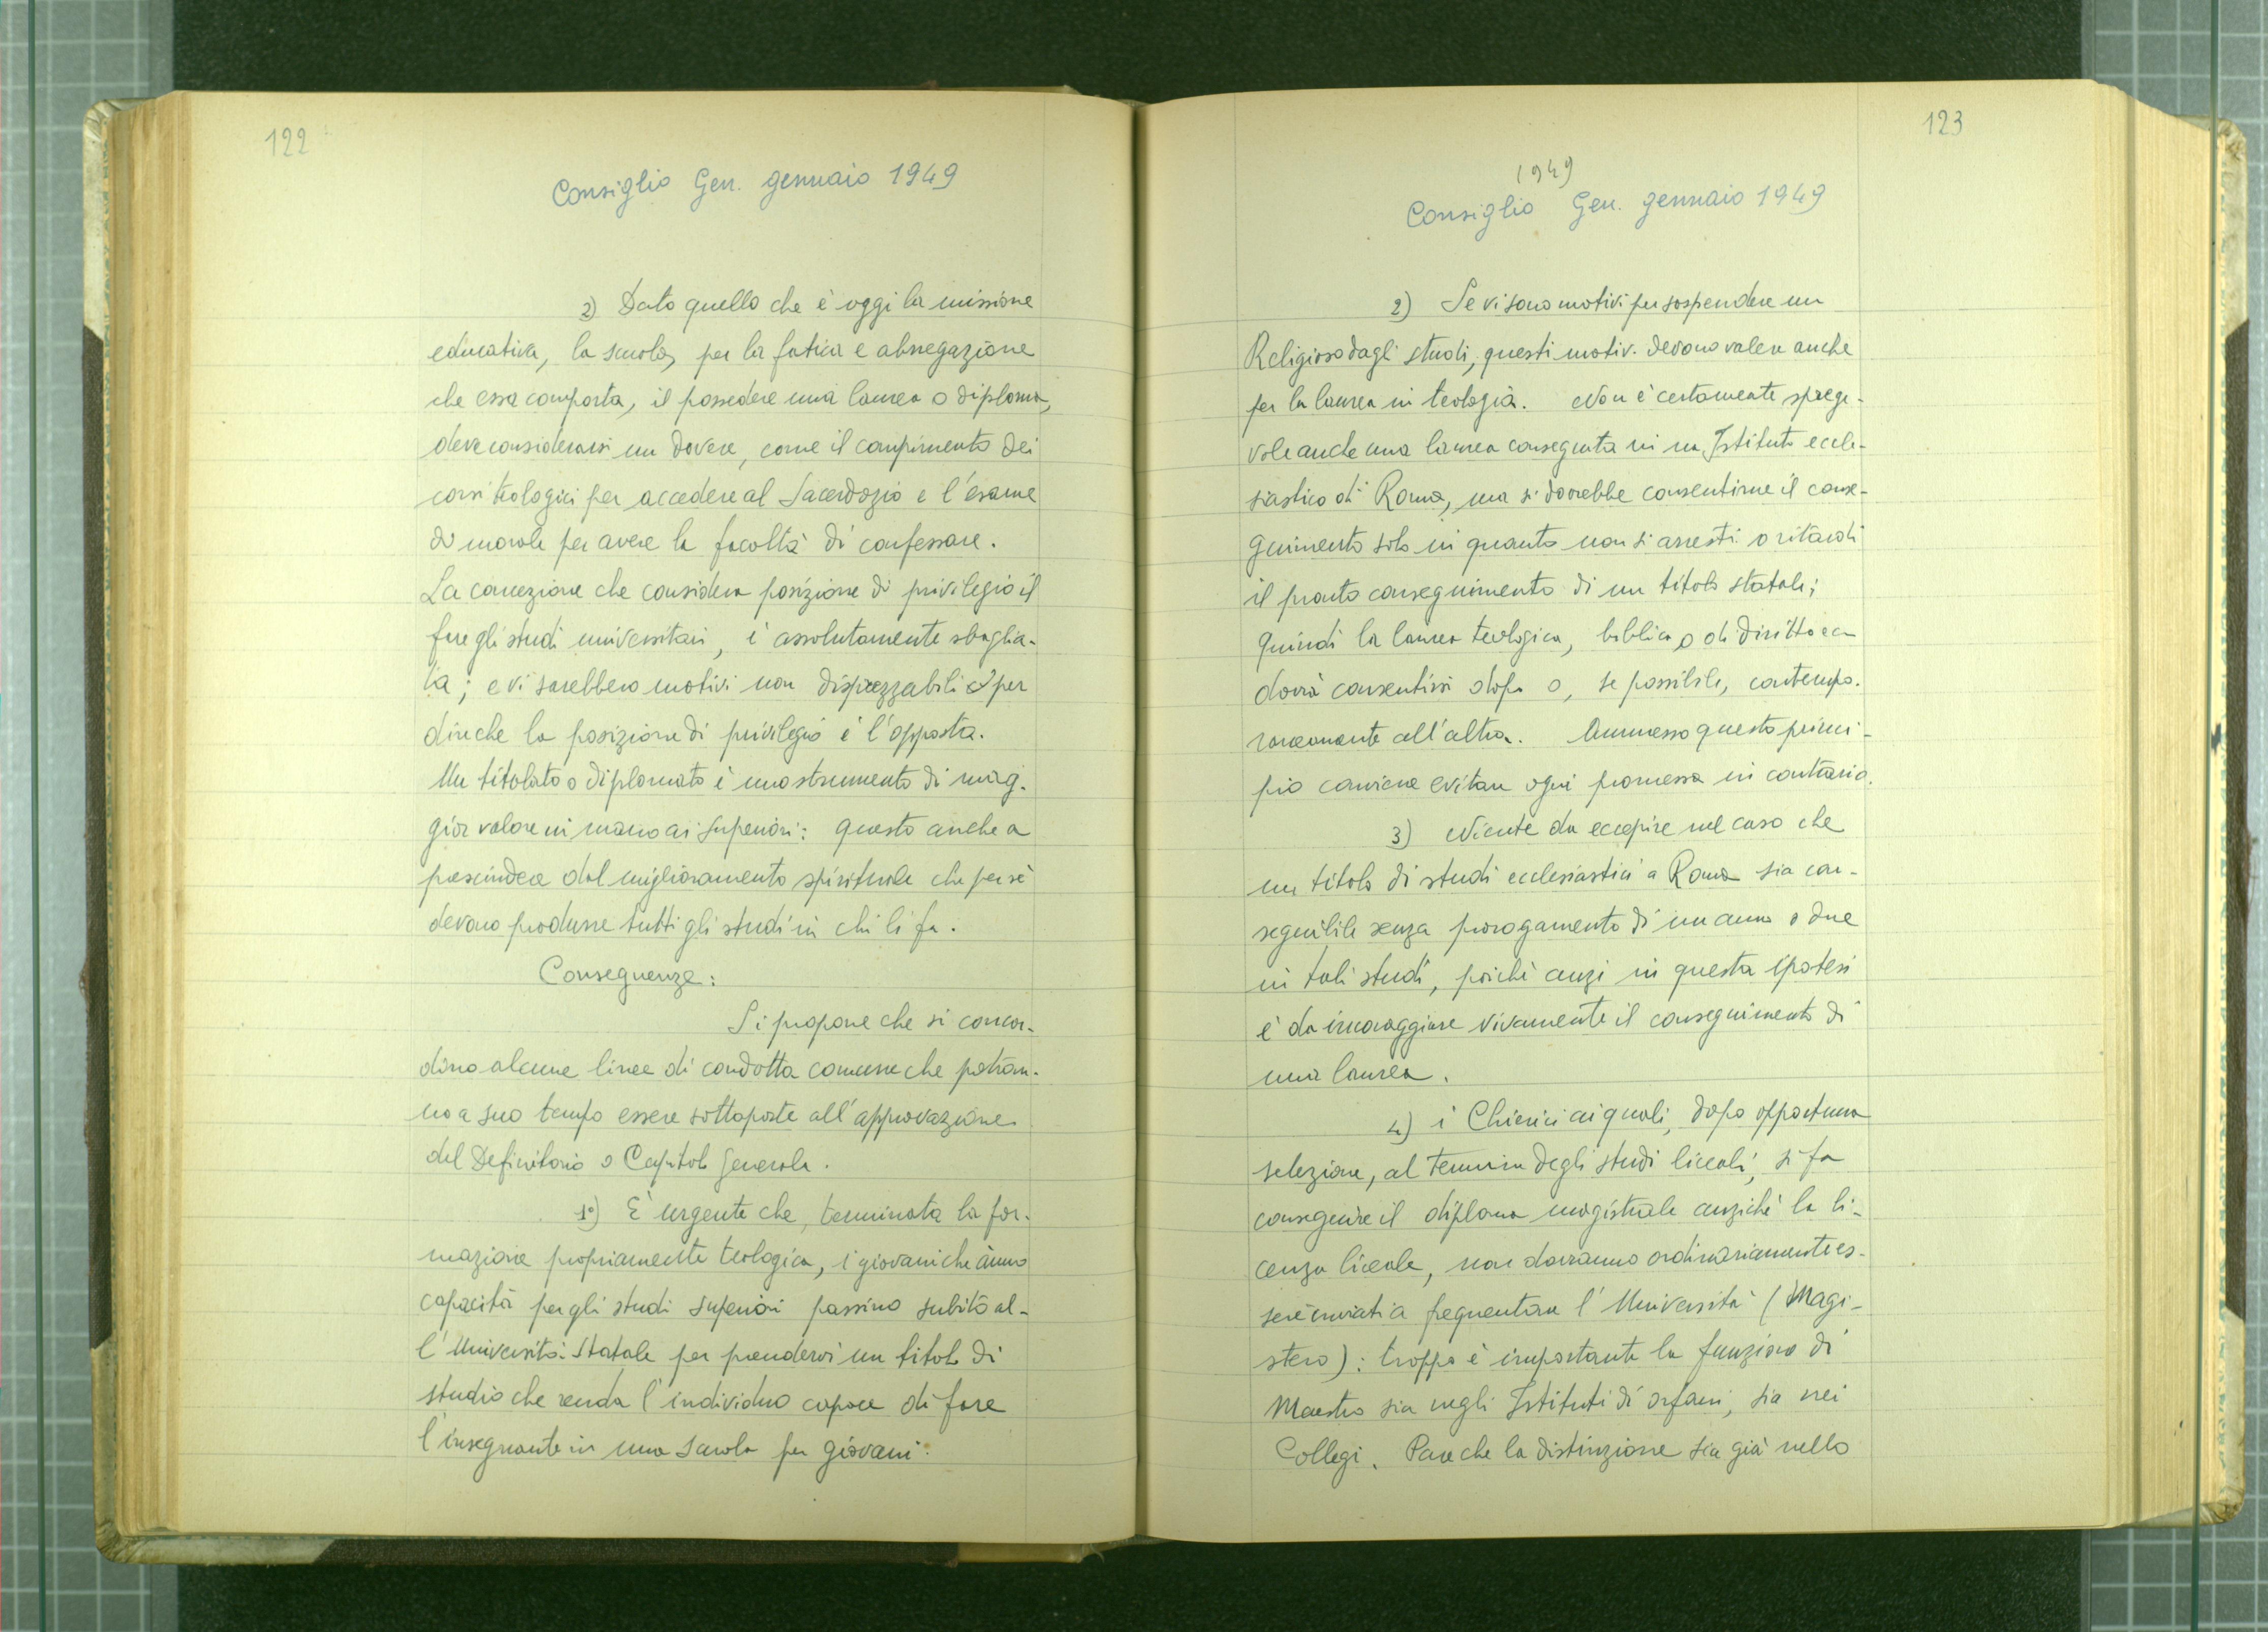 122
Consiglio Gen. gennaio 1949
2) Dato quello che è oggi la missione
educativa, la scuola, per la fatica e abnegazione
che essa comporta, il possedere una laurea o diploma,
deve considerarsi un dovere, come il compimento dei
corsi teologici per accedere al Sacerdozio e l'esame
di morale per avere la facoltà di confessare.
La concezione che considera posizione di privilegio il
fare gli studi universitari, è assolutamente sbaglia-
ta; e vi sarebbero motivi non disprezzabili per
dire che la posizione di privilegio è l'opposta.
Un titolato o diplomato è uno strumento di mag-
gior valore in mano ai Superiori: questo anche a
prescindere dal miglioramento spirituale che per sè
devono produrre tutti gli studi in chi li fa.
Conseguenze:
Si propone che si concor-
dino alcune linee di condotta comune che potran-
no a suo tempo essere sottoposte all'approvazione
del Definitorio o Capitolo Generale.
1°) È urgente che, terminata la for-
mazione propriamente teologica, i giovani che ànno
capacità per gli studi superiori passino subito al-
l'Università Statale per prendervi un titolo di
studio che renda l'individuo capace di fare
l'insegnante in una scuola per giovani.
123
1949
Consiglio Gen. gennaio 1949
2) Se vi sono motivi per sospendere un
Religioso dagli studi, questi motivi devono valere anche
per la laurea in teologia. Non è certamente sprege-
vole anche una laurea conseguita in un Istituto eccle-
siastico di Roma, ma si dovrebbe consentirne il conse-
guimento solo in quanto non si arresti o ritardi
il pronto conseguimento di un titolo statale;
quindi la laurea teologica, biblica o di diritto ecc
dovrà consentirsi dopo o, se possibile, contempo-
raneamente all'altra. Ammesso questo princi-
pio conviene evitare ogni promessa in contrario.
3) Niente da eccepire nel caso che
un titolo di studi ecclesiastici a Roma sia con-
seguibile senza prorogamento di un anno o due
in tali studi, poichè anzi in questa ipotesi
è da incoraggiare vivamente il conseguimento di
una laurea.
4) i Chierici ai quali, dopo opportuna
selezione, al termine degli studi liceali, si fa
conseguire il diploma magistrale anzichè la li-
cenza liceale, non dovranno ordinariamente es-
sere inviati a frequentare l'Università (Magi-
stero): troppo è importante la funzione di
Maestro sia negli Istituti di orfani, sia nei
Collegi. Pare che la distinzione sia già nello